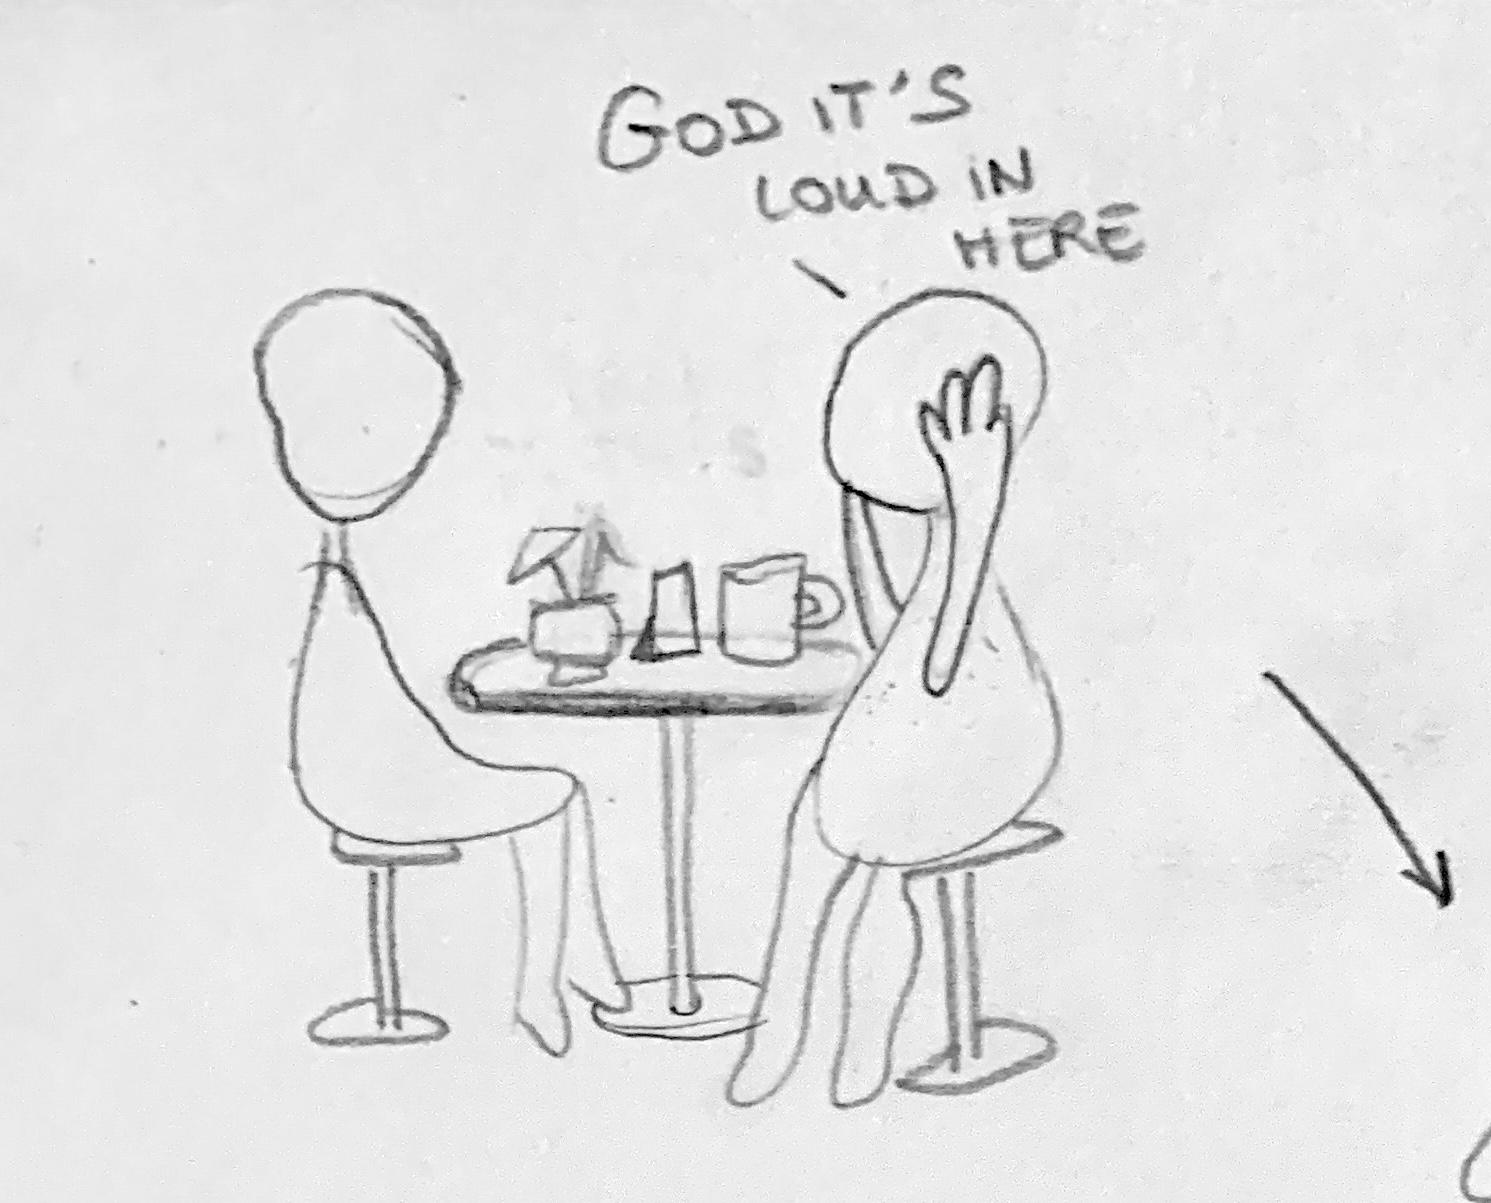 GOD IT'S
LOUD IN
HERE